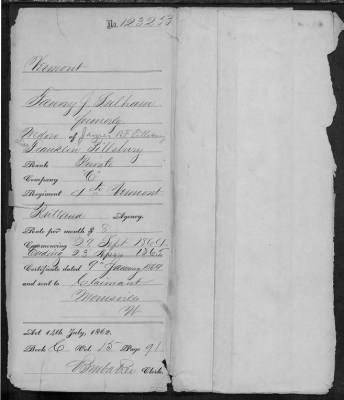 No. 123253
Vermont
Fanny J. Fulham
formerly
Widow of James B F Pillsbury
Franklin Pillsbury
Rank Private
Company "C"
Regiment 4th Vermont
Rutland Agency.
Rate per month $ 8
Commencing 29 Sept 1864
Ending 23 1865
Certificate dated 9" January 1869
and sent to Claimant
Act 14th July, 1862.
Book C Vol. 15 Page 91
Clerk.